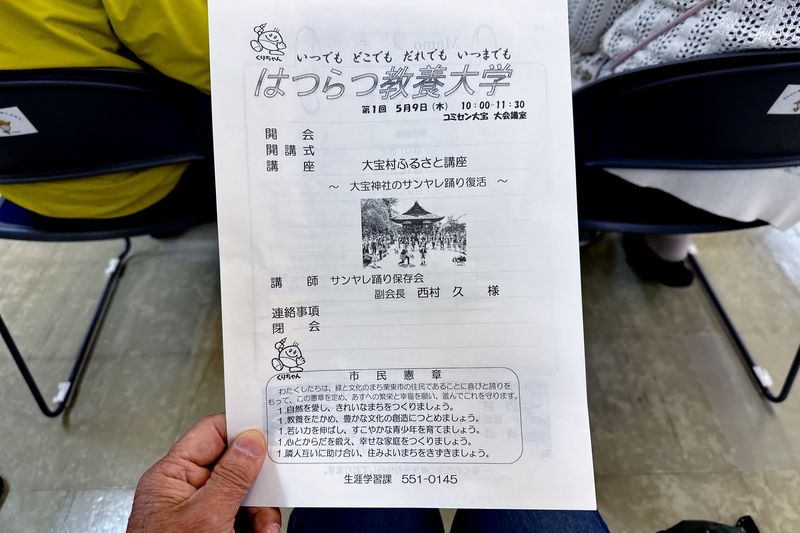 くりちゃん
いつでも どこでも だれでも いつまでも
はつらつ教養大学
第1回 5月9日(木) 10:00-11:30
コミセン大宝 大会議室
開 会
開講式
講 座 大宝村ふるさと講座
～ 大宝神社のサンヤレ踊り復活 ～
講 師 サンヤレ踊り保存会
副会長 西村 久 様
連絡事項
閉 会
くりちゃん
市民憲章
わたくしたちは、緑と文化のまち栗東市の住民であることに喜びと誇りを
もって、この憲章を定め、あすへの繁栄と幸福を願い、進んでこれを守ります。
1.自然を愛し、きれいなまちをつくりましょう。
1.教養をたかめ、豊かな文化の創造につとめましょう。
1.若い力を伸ばし、すこやかな青少年を育てましょう。
1.心とからだを鍛え、幸せな家庭をつくりましょう。
1.隣人互いに助け合い、住みよいまちをきずきましょう。
生涯学習課 551-0145